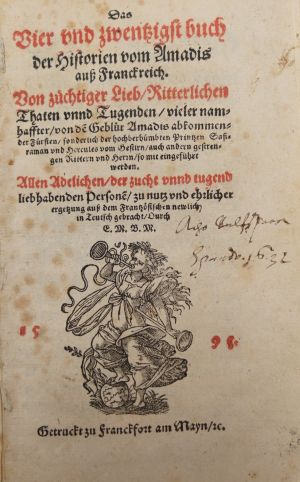 Das
Vier vnd zwentzigst buch
der Historien vom Amadis
auß Franckreich.
Von züchtiger Lieb/ Ritterlichen
Thaten vnnd Tugenden / vieler nam-
haffter/ von dē Geblüt Amadis abkommen-
der Fürsten/ sonderlich der hochberümbten Printzen
raman vnd Hercules vom Gestirn/ auch andern gestren-
gen Rittern vnd Herrn/ so mit eingeführet
werden.
Allen Adelichen/ der zucht vnnd tugend
liebhabenden Personē/ zu nutz vnd ehrlicher
ergetzung auß dem Frantzösischen newlich/
in Teutsch gebracht/ Durch
E. M. B. M.
15 95.
Getruckt zu Franckfort am Mayn/ꝛc.